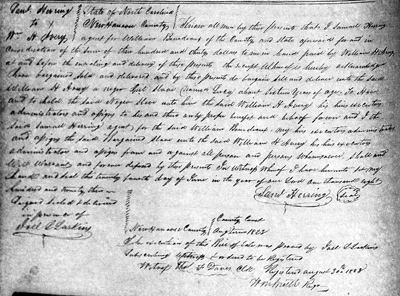 Saml Herring
to
Wm H. Avery
State of North Carolina
New Hanover County
Know all men by this present that I Samuel Herring
agent for William Burdeaux of the County and State aforesaid for and in
Consideration of the Sum of three hundred and thirty dollars to me in hand paid by William H Avery
at and before the ensealing and delivery of this present the receipt whereof is hereby acknowledged
have bargained sold and delivered and by this present do bargain sell and deliver unto the said
William H Avery a negro Girl Slave named Lucy about Sixteen years of age To Have
and to hold the said Negro Slave unto him the said William H Avery his heirs executors
administrators and assigns to his and their only proper use and behoof forever and I the
Said Samuel Herring agent for the said William Burdeaux my heirs executors administrators
and assigns the said bargained Slave unto the said William H Avery his heirs executors
administrators and assigns from and against all person and persons whomsoever Shall and
Will Warrant and forever defend by this presents In Witness Whereof I have hereunto set my
hand and seal this twenty fourth day of June in the year of our Lord one thousand eight
hundred and twenty three
Saml Herring (Seal)
Signed Sealed & delivered
in presence of
Joel S Larkins
County Court
New Hanover County
The execution of this Bill of Sale was proved by Joel S. Larkins
Subscribing Witness & ordered to be Registered
Witness Thos F Davis Clk
Registered august 30th
Regr